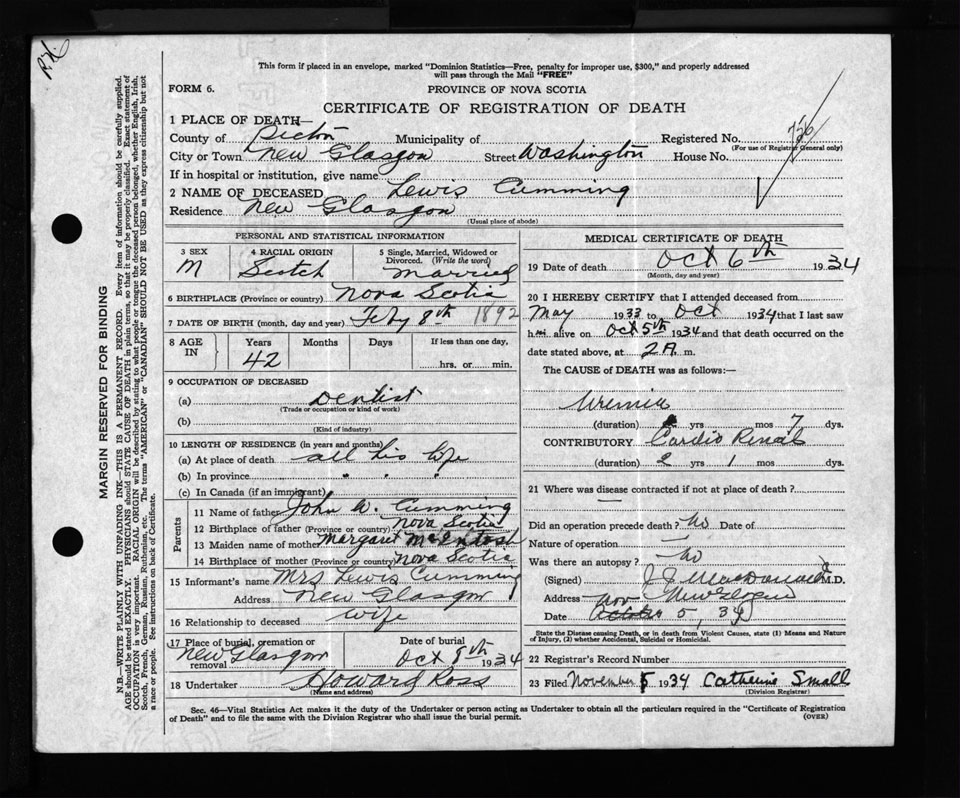 R.K.
This form if placed in an envelope, marked "Dominion Statistics—Free, penalty for improper use, $300," and properly addressed
will pass through the Mail "FREE"
FORM 6.
PROVINCE OF NOVA SCOTIA
CERTIFICATE OF REGISTRATION OF DEATH
1 PLACE OF DEATH—
County of Pictou Municipality of Registered No. 726
(For use of Registrar General only)
City or Town New Glasgow Street Washington House No.
If in hospital or institution, give name
2 NAME OF DECEASED Lewis Cumming
Residence New Glasgow
(Usual place of abode)
MARGIN RESERVED FOR BINDING
N.B.—WRITE PLAINLY WITH UNFADING INK—THIS IS A PERMANENT RECORD. Every item of information should be carefully supplied.
AGE should be stated EXACTLY. PHYSICIANS should STATE CAUSE OF DEATH in plain terms, so that it may be properly classified. Exact statement of
OCCUPATION is very important. RACIAL ORIGIN will be described by stating to what people or tongue the deceased person belonged, whether English, Irish,
Scotch, French, German, Russian, Ruthenian, etc. The terms "AMERICAN" or "CANADIAN" SHOULD NOT BE USED as they express citizenship but not
a race or people. See instructions on back of Certificate.
PERSONAL AND STATISTICAL INFORMATION
3 SEX 4 RACIAL ORIGIN 5 Single, Married, Widowed or
Divorced. (Write the word)
M Scotch Married
6 BIRTHPLACE (Province or country) Nova Scotia
7 DATE OF BIRTH (month, day and year) Feby 8th 1892
8 AGE IN Years Months Days If less than one day,
42 hrs. or min.
9 OCCUPATION OF DECEASED
(a) Dentist
(Trade or occupation or kind of work)
(b)
(Kind of industry)
10 LENGTH OF RESIDENCE (in years and months)
(a) At place of death all his life
(b) In province " " "
(c) In Canada (if an immigrant)
Parents
11 Name of father John W. Cumming
12 Birthplace of father (Province or country) Nova Scotia
13 Maiden name of mother Margaret McIntosh
14 Birthplace of mother (Province or country) Nova Scotia
15 Informant's name Mrs Lewis Cumming
Address New Glasgow
16 Relationship to deceased wife
17 Place of burial, cremation or removal New Glasgow Date of burial Oct 8th 1934
18 Undertaker Howard Ross
(Name and address)
MEDICAL CERTIFICATE OF DEATH
19 Date of death Oct 6th 1934
(Month, day and year)
20 I HEREBY CERTIFY that I attended deceased from
May 1933 to Oct 1934 that I last saw
him alive on Oct 5th 1934 and that death occurred on
date stated above, at 2 A. m.
The CAUSE of DEATH was as follows:—
Uremia
(duration) yrs mos 7 dys.
CONTRIBUTORY Cardio Renal
(duration) 2 yrs 1 mos dys.
21 Where was disease contracted if not at place of death? —
Did an operation precede death? No Date of
Nature of operation —
Was there an autopsy? No
(Signed) M.D.
Address New Glasgow
Date Nov 5, 34
State the Disease causing Death, or in death from Violent Causes, state (1) Means and Nature
of Injury, (2) whether Accidental, Suicidal or Homicidal.
22 Registrar's Record Number
23 Filed November 5 1934 Catherine Small
(Division Registrar)
Sec. 46—Vital Statistics Act makes it the duty of the Undertaker or person acting as Undertaker to obtain all the particulars required in the "Certificate of Registration
of Death" and to file the same with the Division Registrar who shall issue the burial permit. (OVER)